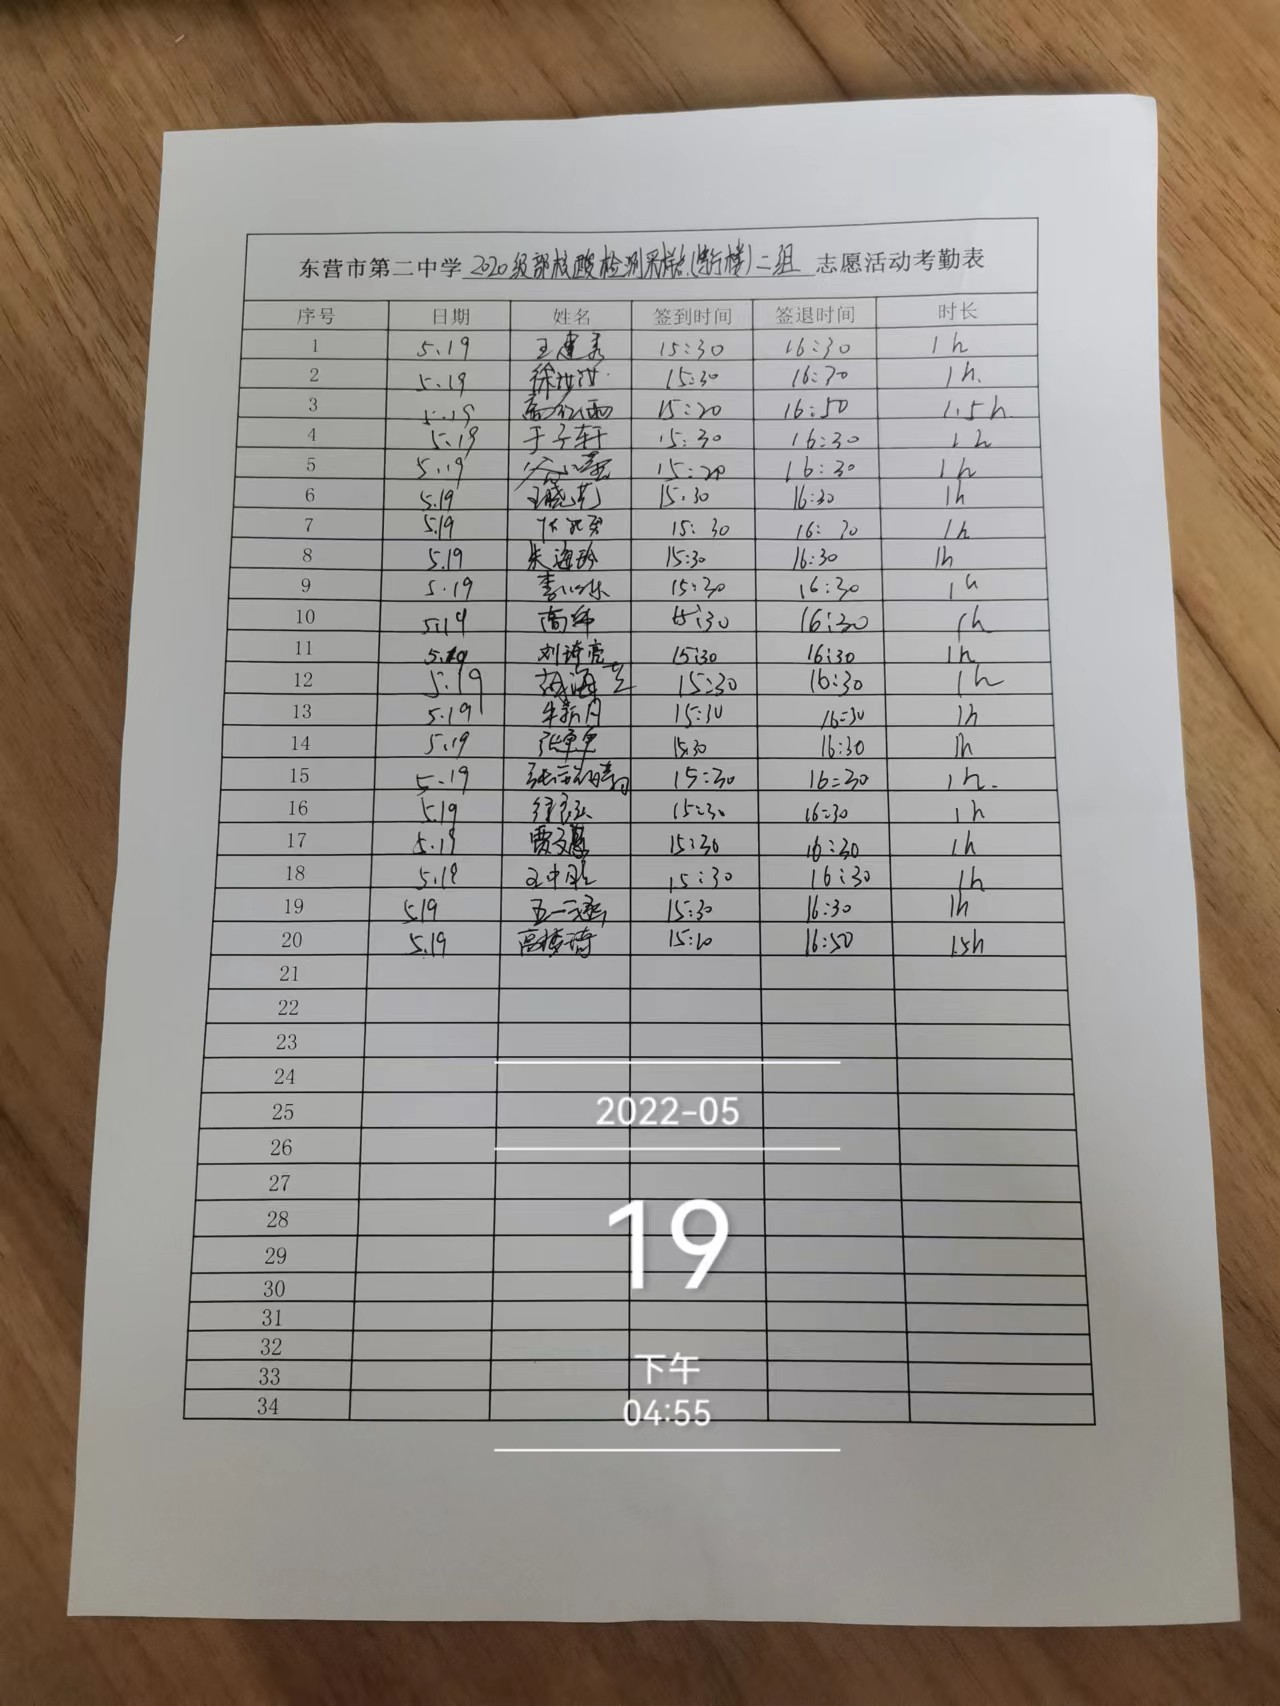 东营市第二中学 2020级部核酸检测采样点(笃行楼)二组 志愿活动考勤表
序号 日期 姓名 签到时间 签退时间 时长
1 5.19 15:30 16:30 1h
2 5.19 15:30 16:30 1h.
3 5.19 15:20 16:50 1.5h.
4 5.19 于子轩 15:30 16:30 1h
5 5.19 16:30 1h
6 5.19 15:30 16:30 1h
7 5.19 15:30 16:30 1h
8 5.19 15:30 16:30 1h
9 5.19 15:30 16:30 1h
10 5.19 15:30 16:30 1h
11 5.19 15:30 16:30 1h
12 5.19 15:30 16:30 1h
13 5.19 牛新月 15:30 16:30 1h
14 5.19 15:30 16:30 1h
15 5.19 15:30 16:30 1h.
16 5.19 15:30 16:30 1h
17 5.19 15:30 16:30 1h
18 5.19 15:30 16:30 1h
19 5.19 15:30 16:30 1h
20 5.19 高梓琦 16:50 1.5h
21
22
23
24
25
26
27
28
29
30
31
32
33
34
2022-05
19
下午
04:55